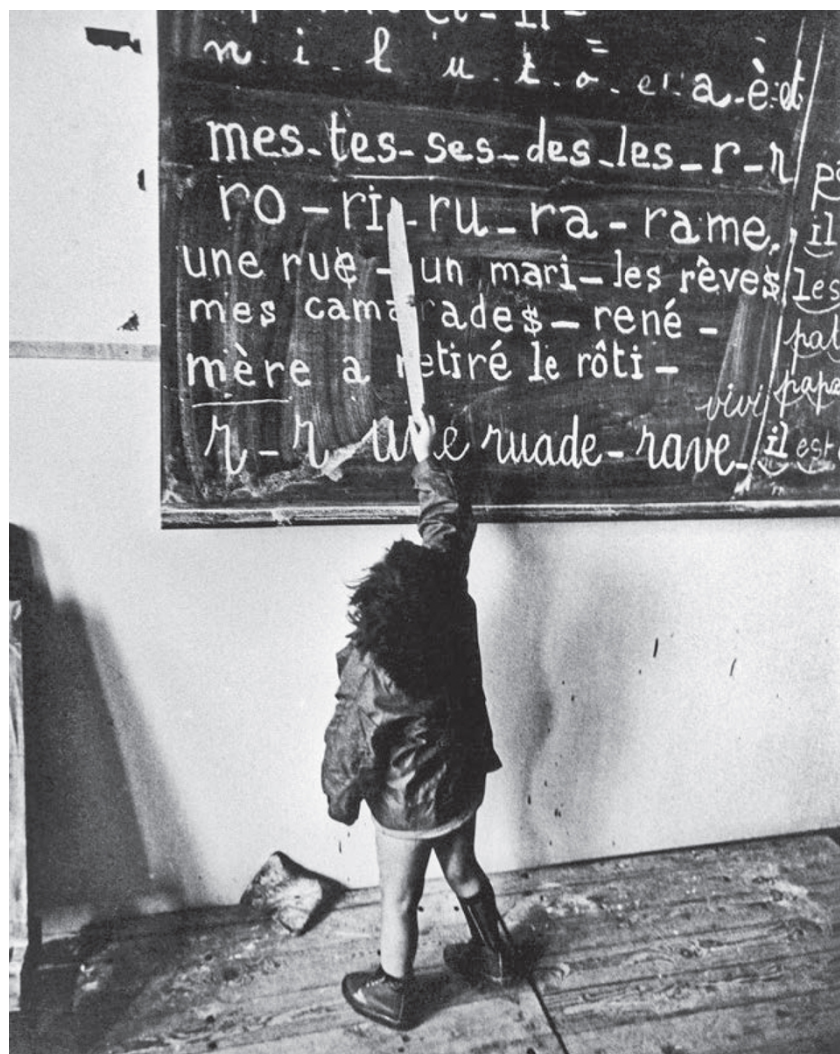 n . i . l . u . t . o . e . a . è . et
mes - tes - ses - des - les - r - r
ro - ri - ru - ra - rame.
une rue - un mari - les rêves
mes camarades - rené -
mère a retiré le rôti -
r - r une ruade - rave -
vivi
il
les
papa
il est